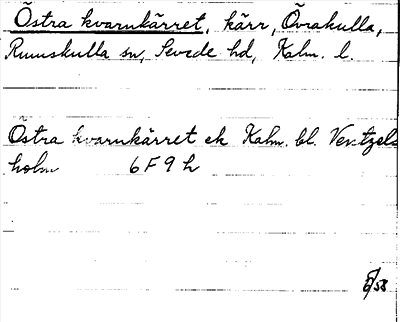 Östra kvarnkärret, kärr, Övrakulla,
Rumskulla sn, Sevede hd, Kalm. l.
Östra kvarnkärret ek Kalm. bl. Ventzels
holm 6 F 9 h